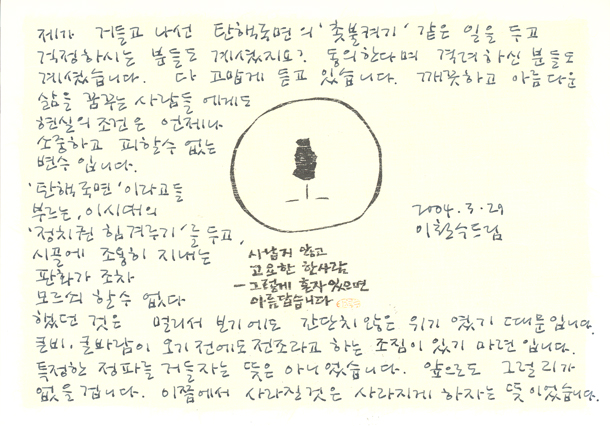 제가 거들고 나선 탄핵국면의 '촛불켜기' 같은 일을 두고
걱정하시는 분들도 계셨지요? 동의한다며 격려하신 분들도
계셨습니다. 다 고맙게 듣고 있습니다. 깨끗하고 아름다운
삶을 꿈꾸는 사람들에게도
현실의 조건은 언제나
소중하고 피할수 없는
변수입니다.
'탄핵국면'이라고들
부르는, 이시대의
'정치권 힘겨루기'를 두고,
시골에 조용히 지내는
판화가 조차
모르쇠 할수 없다
했던 것은 멀리서 보기에도 간단치 않은 위기였기 때문입니다.
큰비, 큰바람이 오기전에도 전조라고 하는 조짐이 있기 마련입니다.
특정한 정파를 거들자는 뜻은 아니었습니다. 앞으로도 그럴리가
없을겁니다. 이쯤에서 사라질것은 사라지게 하자는 뜻이었습니다.
시납지 않고
고요한 한사람
- 그렇게 혼자 있으면
아름답습니다
2004.3.29
이철수드림